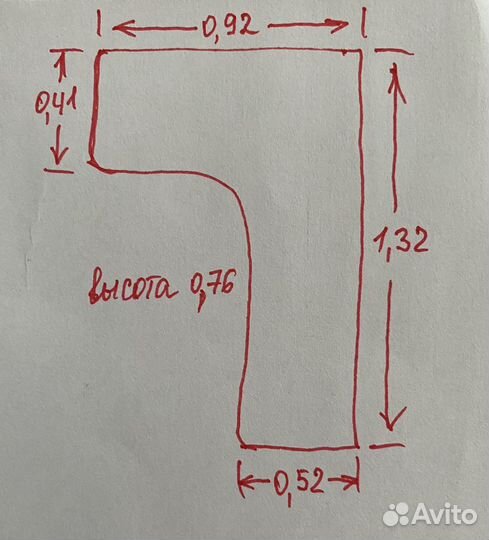 0,92
0,41
1,32
высота 0,76
0,52
Avito